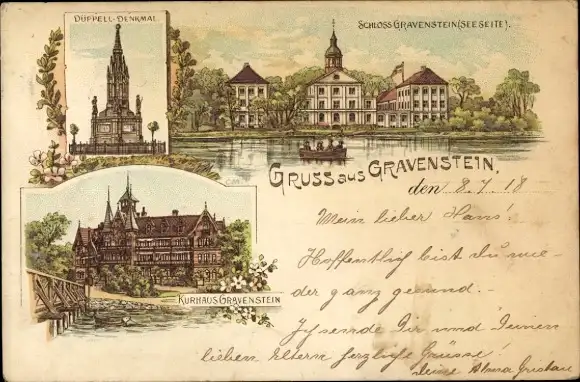 DÜPPELL-DENKMAL
SCHLOSS GRAVENSTEIN (SEESEITE).
GRUSS aus GRAVENSTEIN,
den 8.7.18
Mein lieber Hans!
Hoffenthlig bist du wie-
der ganz gesund.-
KURHAUS GRAVENSTEIN
Ich sende Dir und Deinen
lieben Eltern herzliche Grüsse!
deine Alma